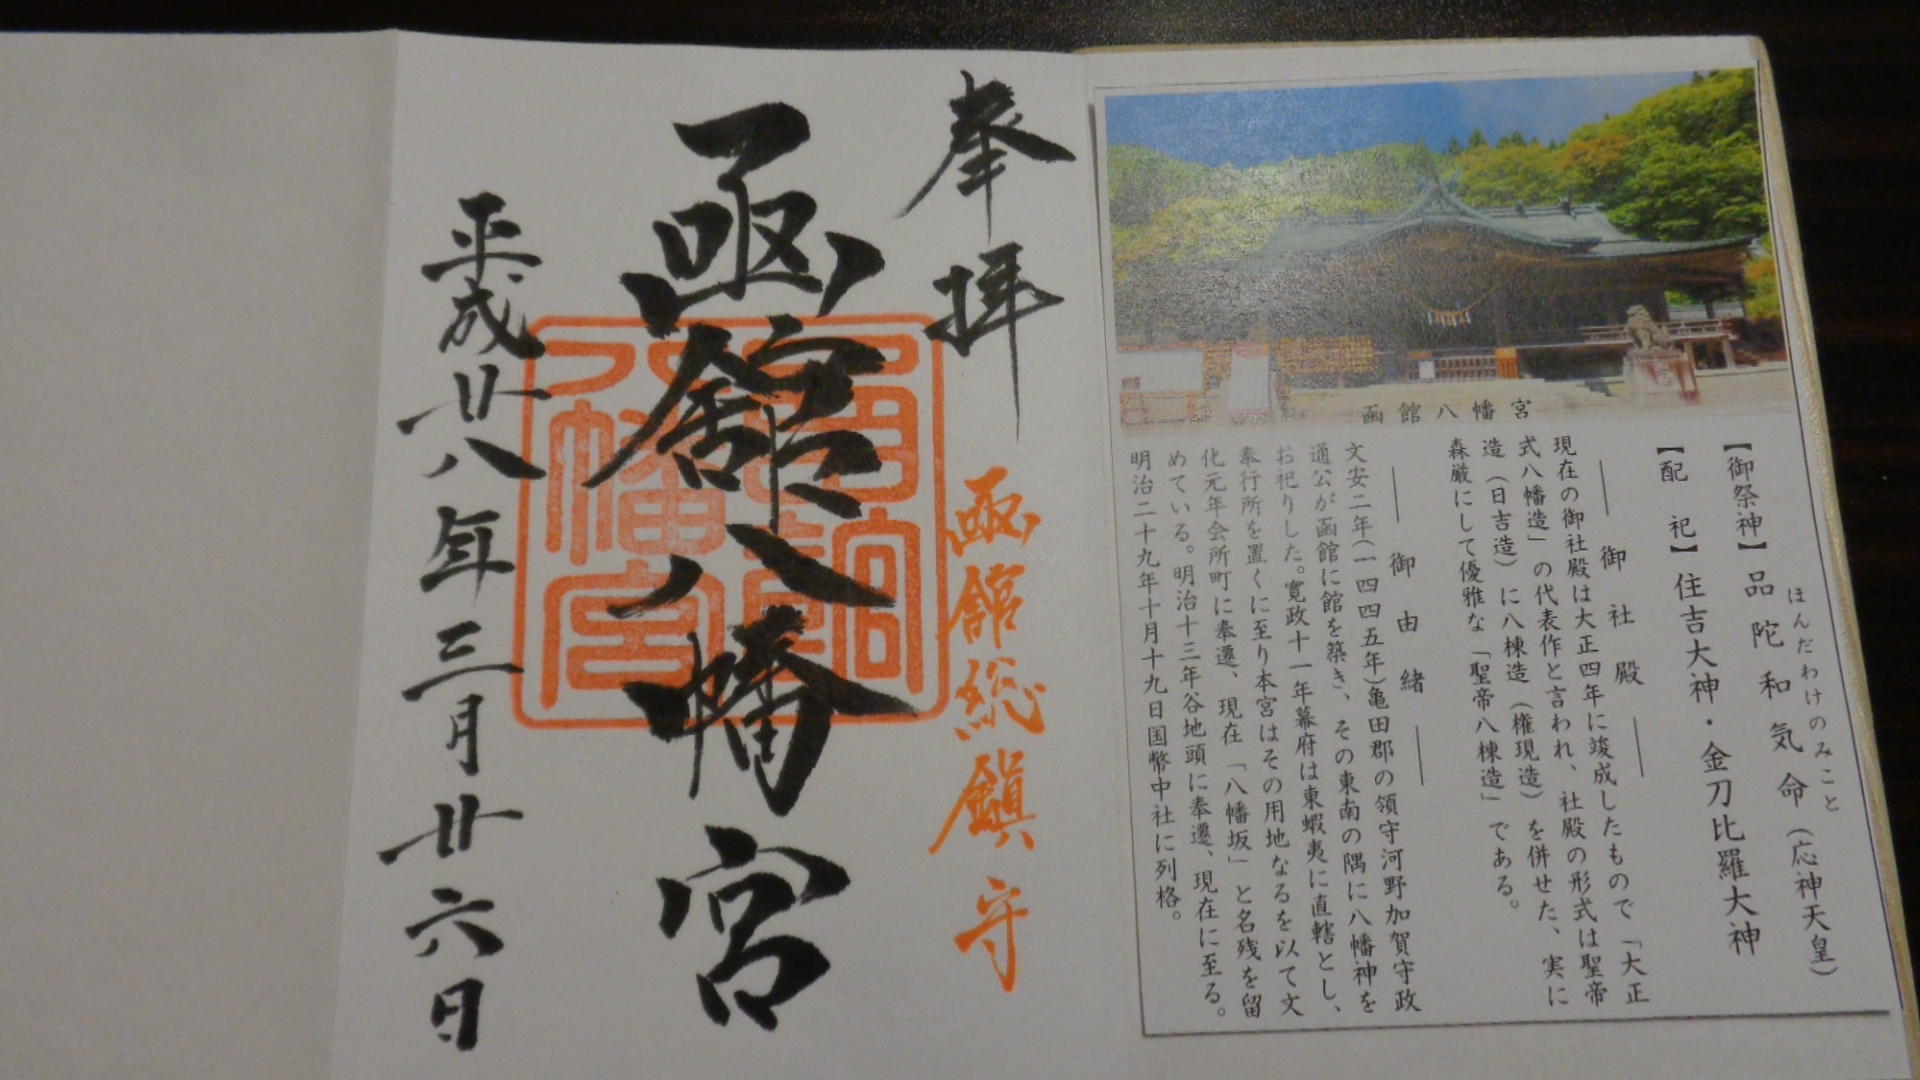 函館八幡宮
ほんだわけのみこと
【御祭神】品陀和気命（応神天皇）
【配祀】住吉大神・金刀比羅大神
御社殿
現在の御社殿は大正四年に竣成したもので「大正
式八幡造」の代表作と言われ、社殿の形式は聖帝
造（日吉造）に八棟造（権現造）を併せた、実に
森厳にして優雅な「聖帝八棟造」である。
御由緒
文安二年(一四四五年)亀田郡の領守河野加賀守政
通公が函館に館を築き、その東南の隅に八幡神を
お祀りした。寛政十一年幕府は東蝦夷に直轄とし、
奉行所を置くに至り本宮はその用地なるを以て文
化元年会所町に奉遷、現在「八幡坂」と名残を留
めている。明治十三年谷地頭に奉遷、現在に至る。
明治二十九年十月十九日国幣中社に列格。
奉拝
函館総鎮守
函館八幡宮
函館八幡宮
平成廿八年三月廿六日